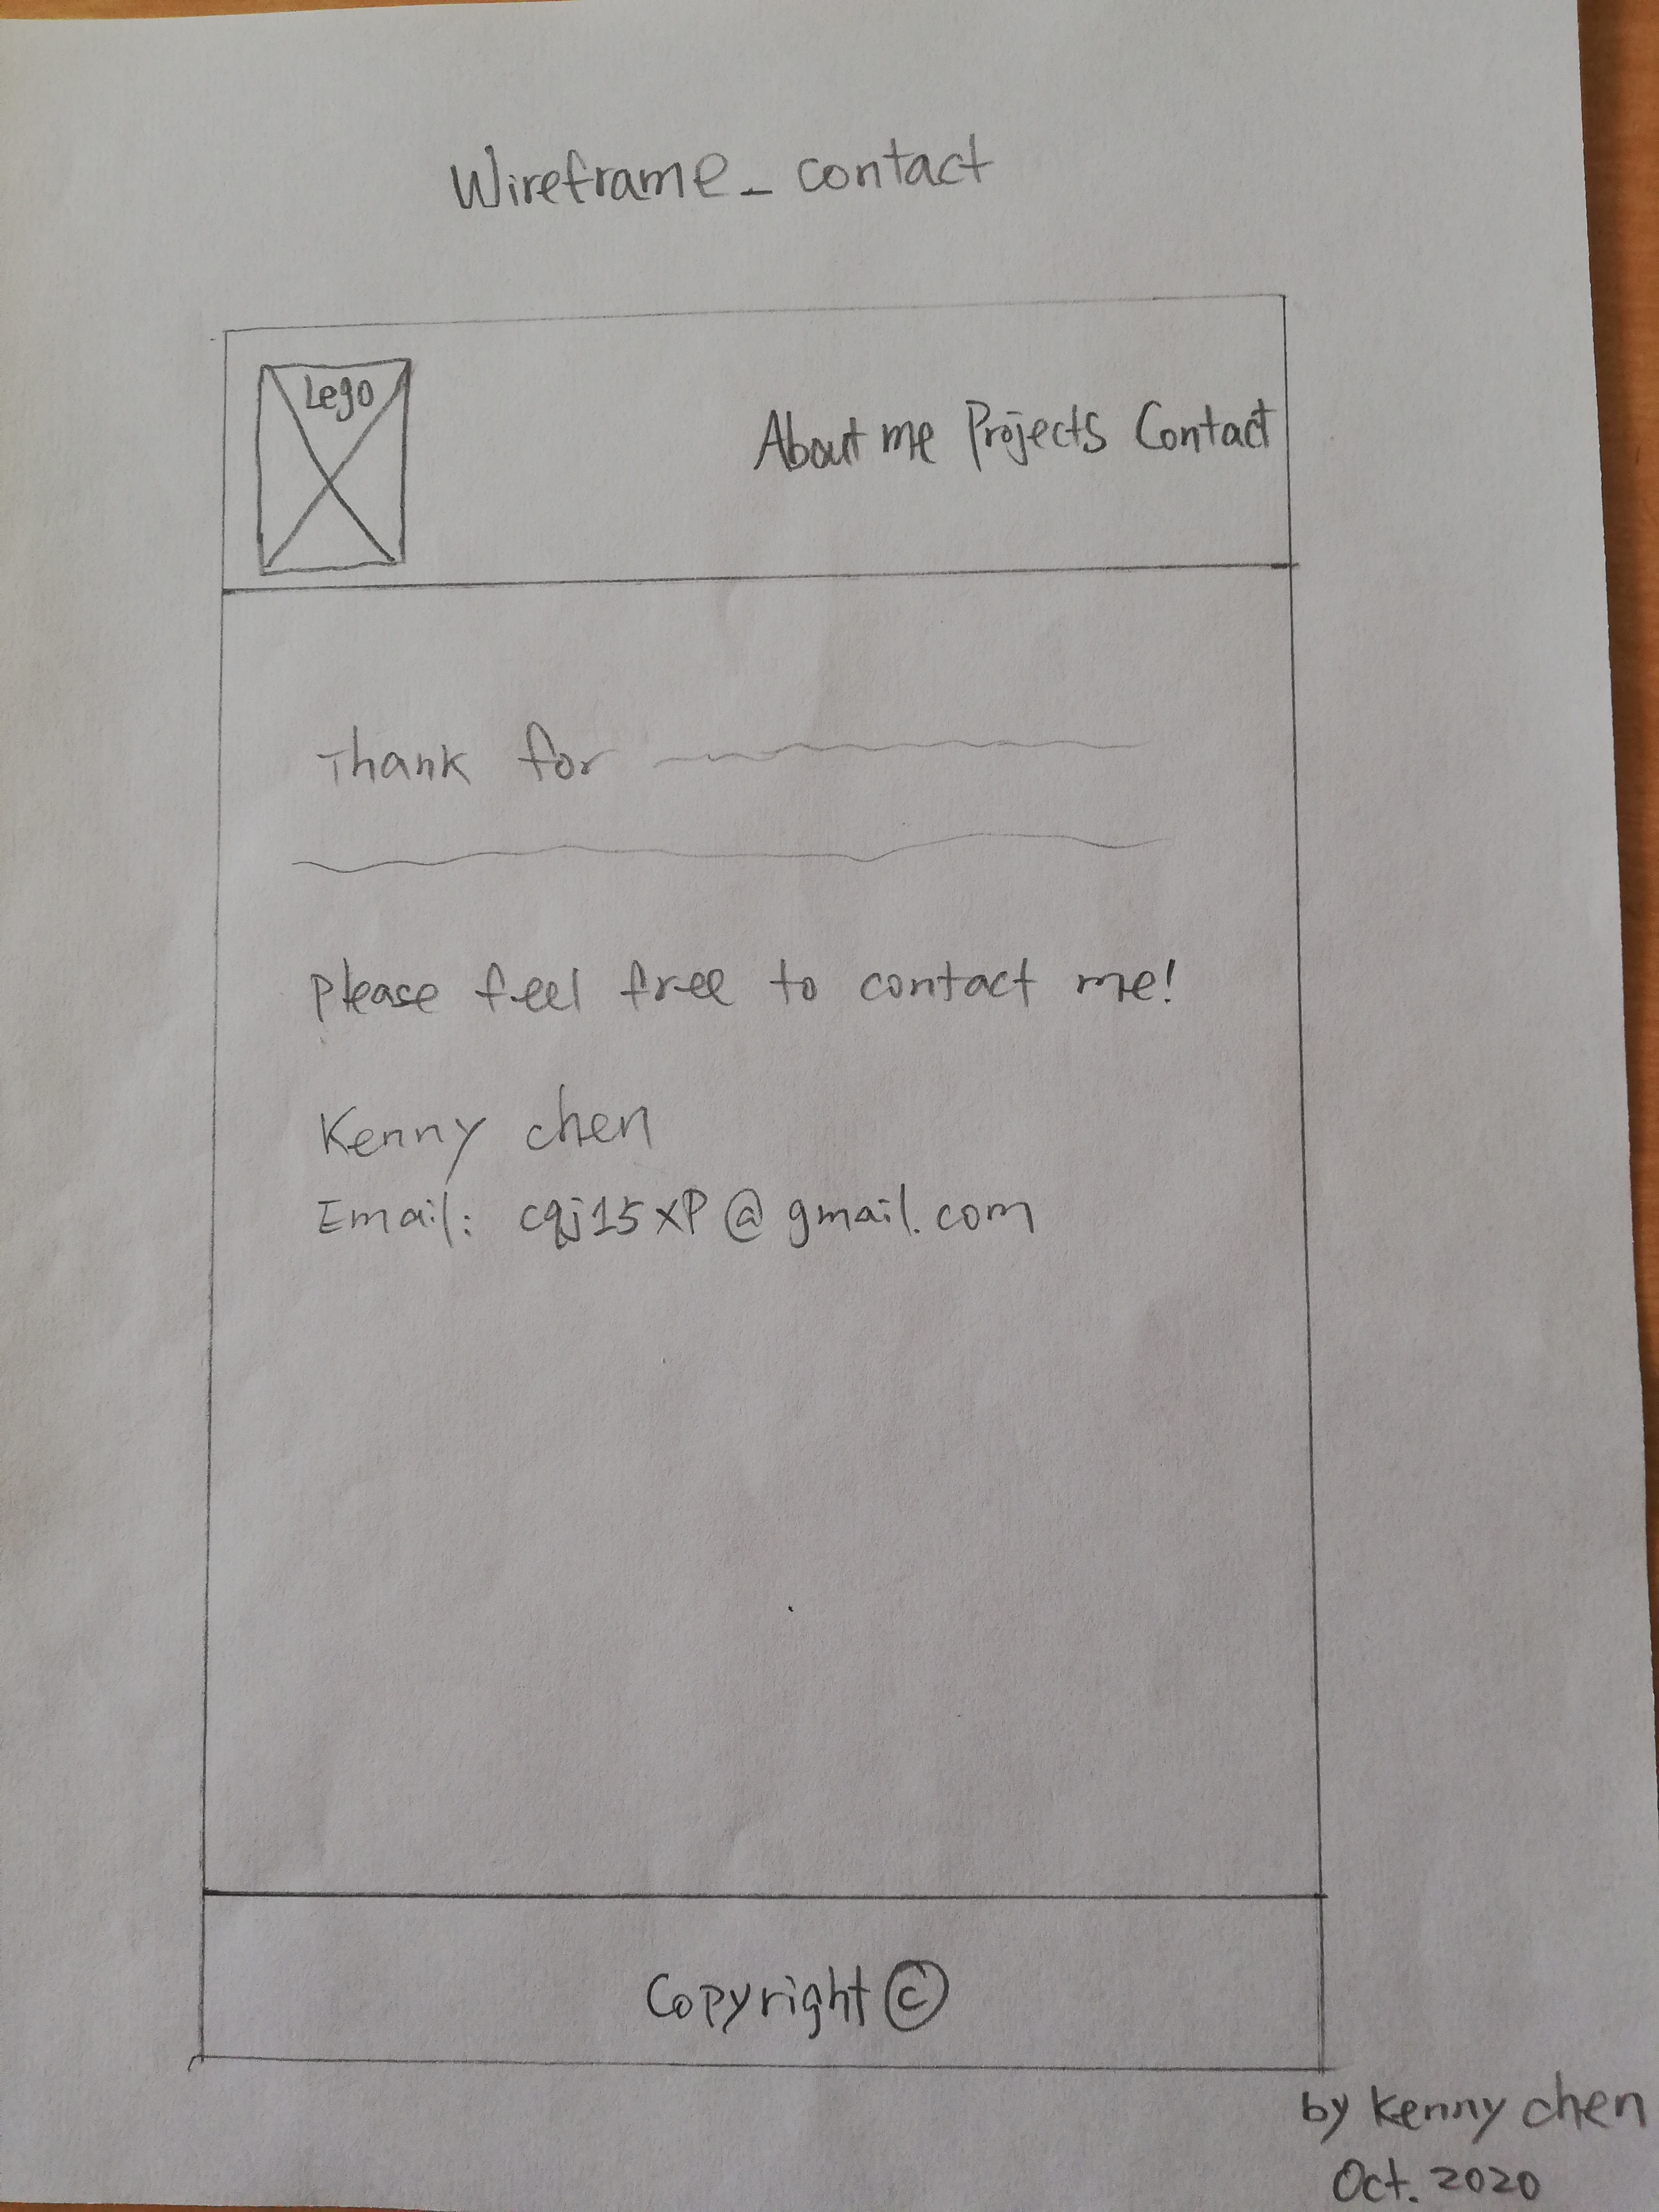 Wireframe_ contact
Lego
About me Projects Contact
Thank for
Please feel free to contact me!
Kenny chen
Email: cqj15xp@gmail.com
Copyright ©
by Kenny chen
Oct. 2020